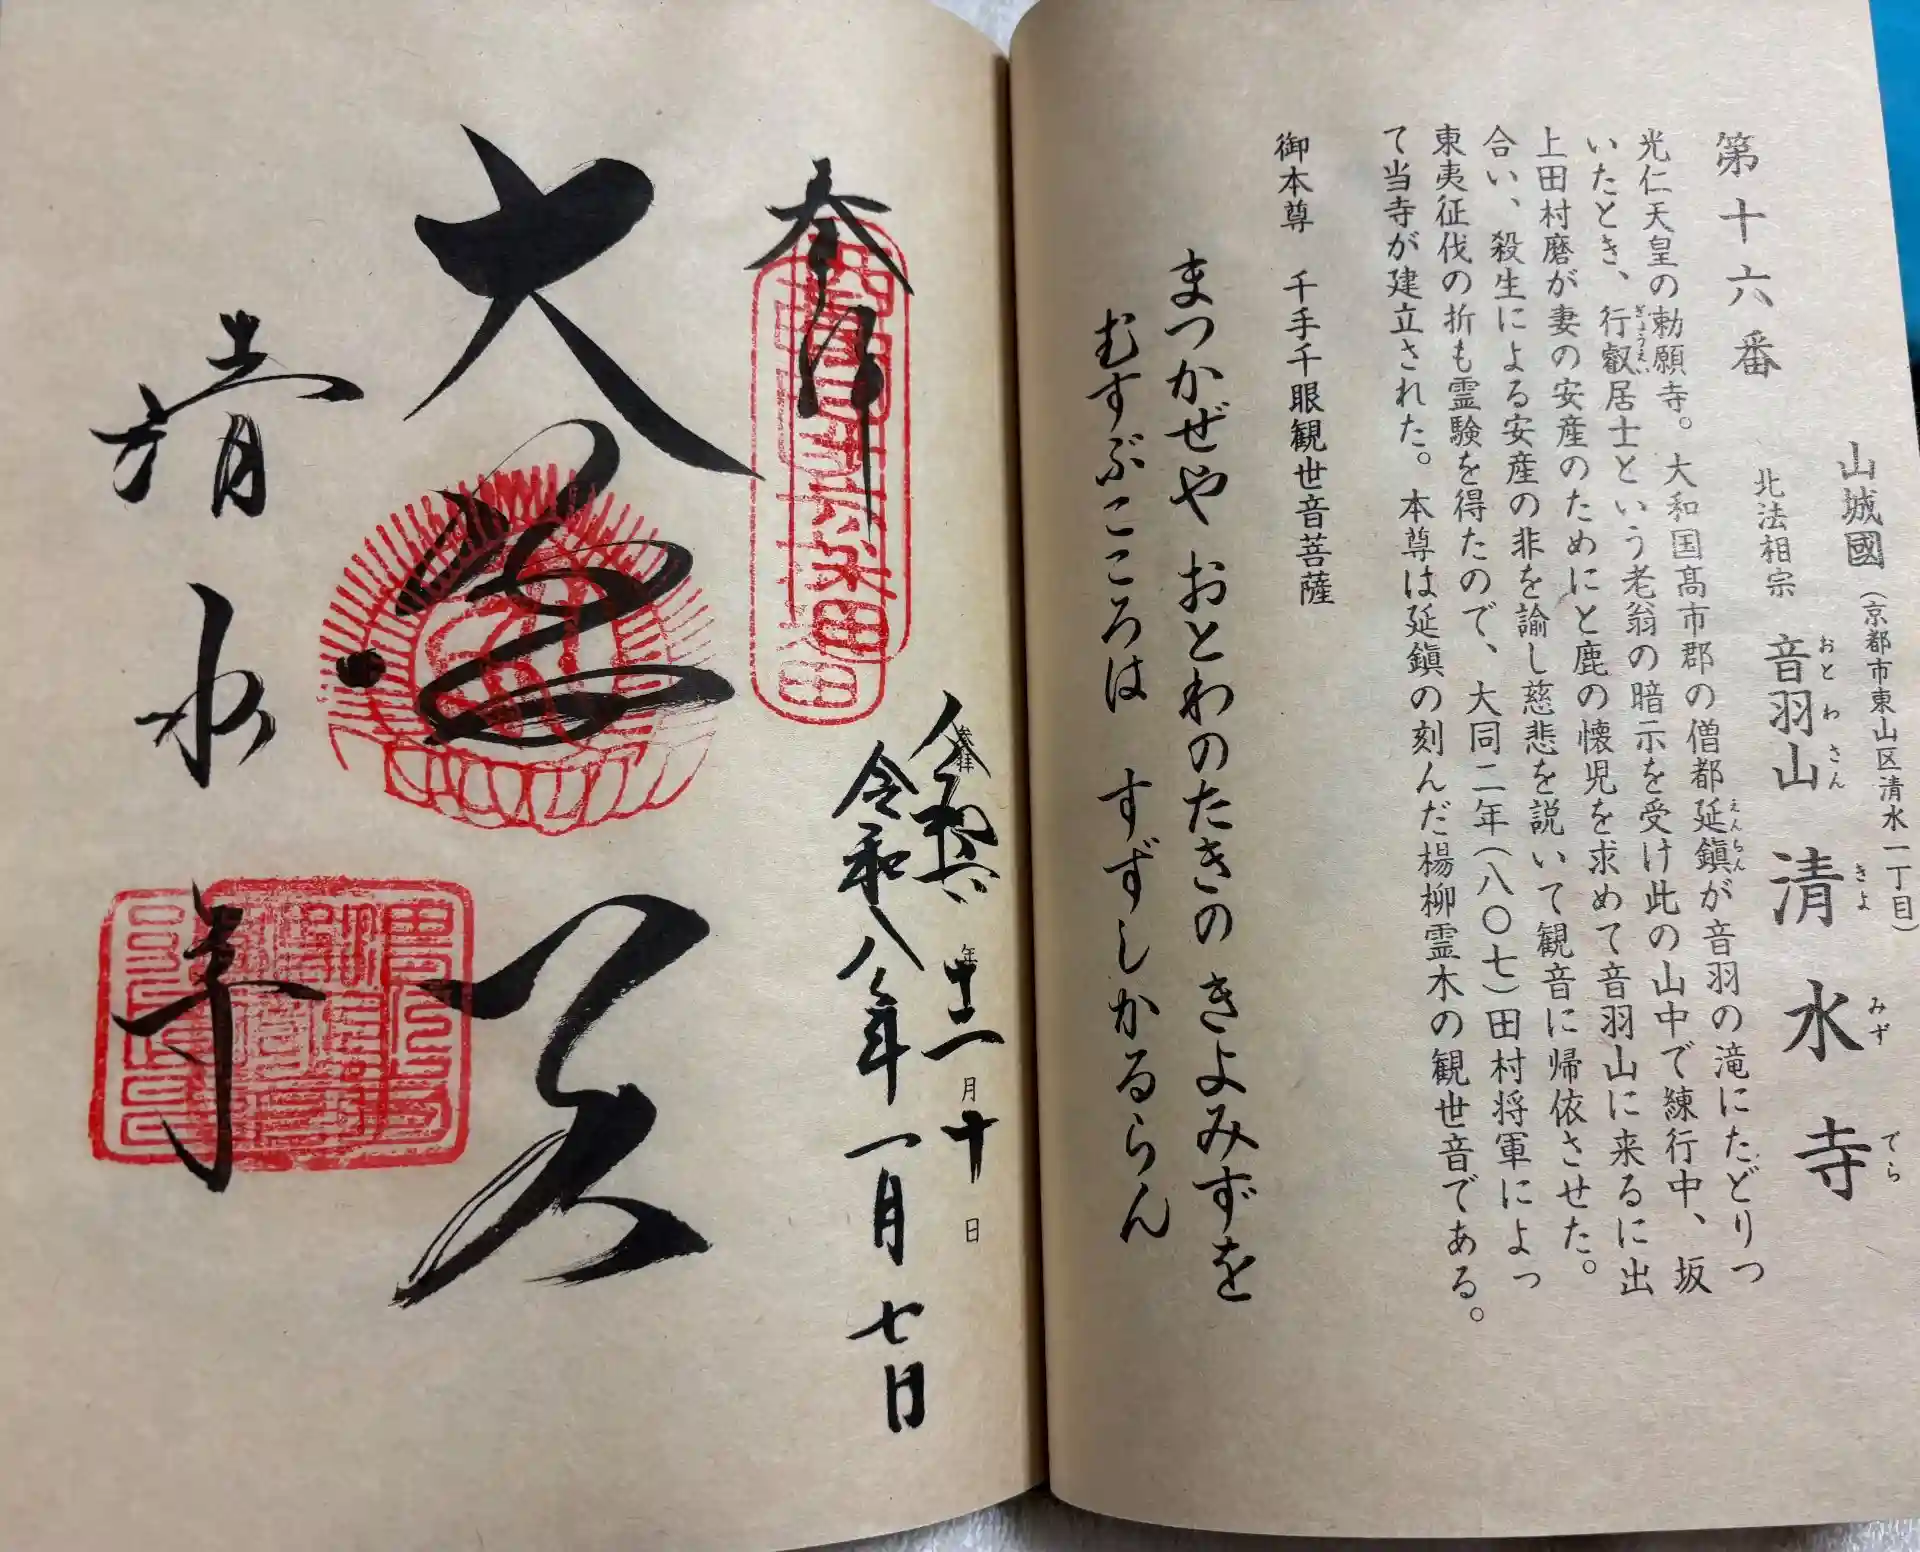 山城國(京都市東山区清水一丁目)
北法相宗 音羽山 清水寺
おとわさん きよみずでら
第十六番
光仁天皇の勅願寺。大和国高市郡の僧都延鎭が音羽の滝にたどりつ
えんちん
いたとき、行叡居士という老翁の暗示を受け此の山中で練行中、坂
ぎょうえい
上田村磨が妻の安産のためにと鹿の懐児を求めて音羽山に来るに出
合い、殺生による安産の非を諭し慈悲を説いて観音に帰依させた。
東夷征伐の折も霊験を得たので、大同二年(八〇七)田村将軍によっ
て当寺が建立された。本尊は延鎭の刻んだ楊柳霊木の観世音である。
御本尊 千手千眼観世音菩薩
まつかぜや おとわのたきの きよみずを
むすぶこころは すずしかるらん
参拝 令和六年十二月十日
令和八年一月七日
奉拝
大悲閣
清水寺